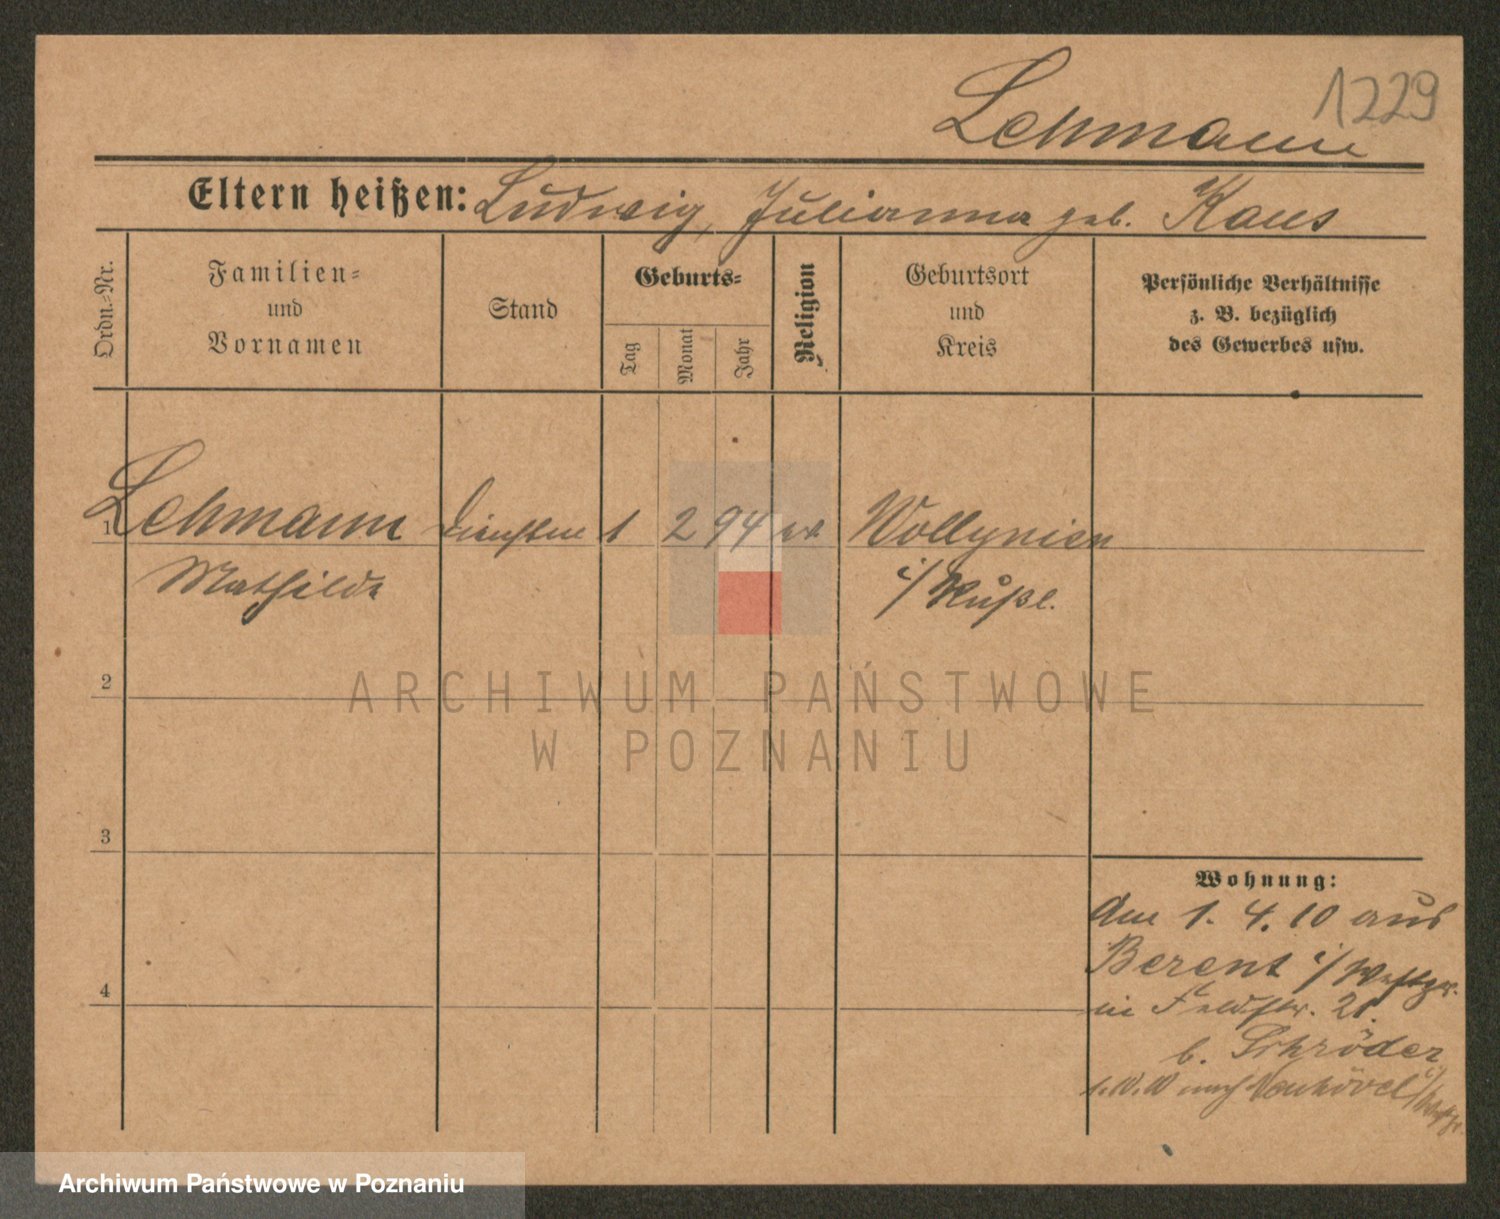 1229
Lehmann
Eltern heißen: Ludwig, Julianna geb. Kaus
Ordn.-Nr.
Familien-
und
Vornamen
Stand
Geburts-
Tag
Monat
Jahr
Religion
Geburtsort
und
Kreis
Persönliche Verhältnisse
z. B. bezüglich
des Gewerbes usw.
1 Lehmann 1 2 94 ev Wollynien
Mathilde i/ Rußl.
2
3
4
Wohnung:
Am 1. 4. 10 aus
Berent i/ Westpr.
in Feldstr. 21.
b. Schröder
nach
ARCHIWUM PAŃSTWOWE
W POZNANIU
Archiwum Państwowe w Poznaniu